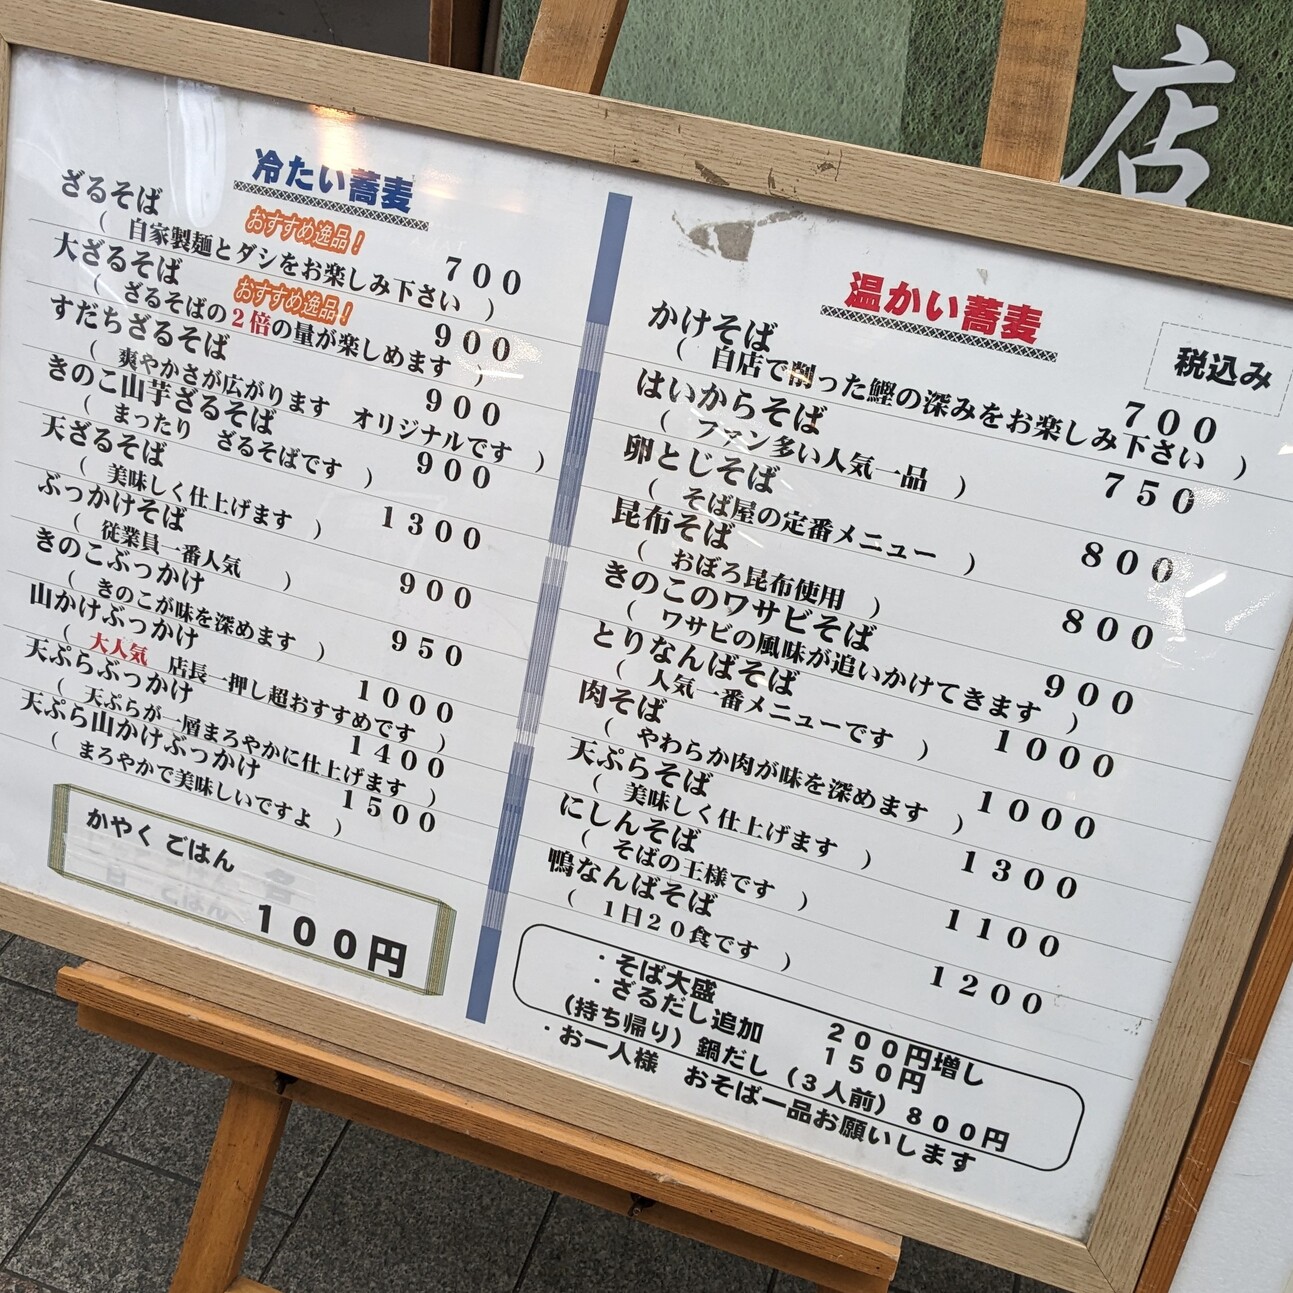 店
冷たい蕎麦
ざるそば
おすすめ逸品!
700
( 自家製麺とダシをお楽しみ下さい )
大ざるそば
おすすめ逸品!
900
( ざるそばの2倍の量が楽しめます )
すだちざるそば 900
( 爽やかさが広がります オリジナルです )
きのこ山芋ざるそば 900
( まったり ざるそばです )
天ざるそば 1300
( 美味しく仕上げます )
ぶっかけそば 900
( 従業員一番人気 )
きのこぶっかけ 950
( きのこが味を深めます )
山かけぶっかけ 1000
( 大人気 店長一押し超おすすめです )
天ぷらぶっかけ 1400
( 天ぷらが一層まろやかに仕上げます )
天ぷら山かけぶっかけ 1500
( まろやかで美味しいですよ )
かやく ごはん
100円
温かい蕎麦
税込み
かけそば 700
( 自店で削った鰹の深みをお楽しみ下さい )
はいからそば 750
( ファン多い人気一品 )
卵とじそば 800
( そば屋の定番メニュー )
昆布そば 800
( おぼろ昆布使用 )
きのこのワサビそば 900
( ワサビの風味が追いかけてきます )
とりなんばそば 1000
( 人気一番メニューです )
肉そば 1000
( やわらか肉が味を深めます )
天ぷらそば 1300
( 美味しく仕上げます )
にしんそば 1100
( そばの王様です )
鴨なんばそば 1200
( 1日20食です )
・そば大盛 200円増し
・ざるだし追加 150円
(持ち帰り) 鍋だし (3人前) 800円
・お一人様 おそば一品お願いします